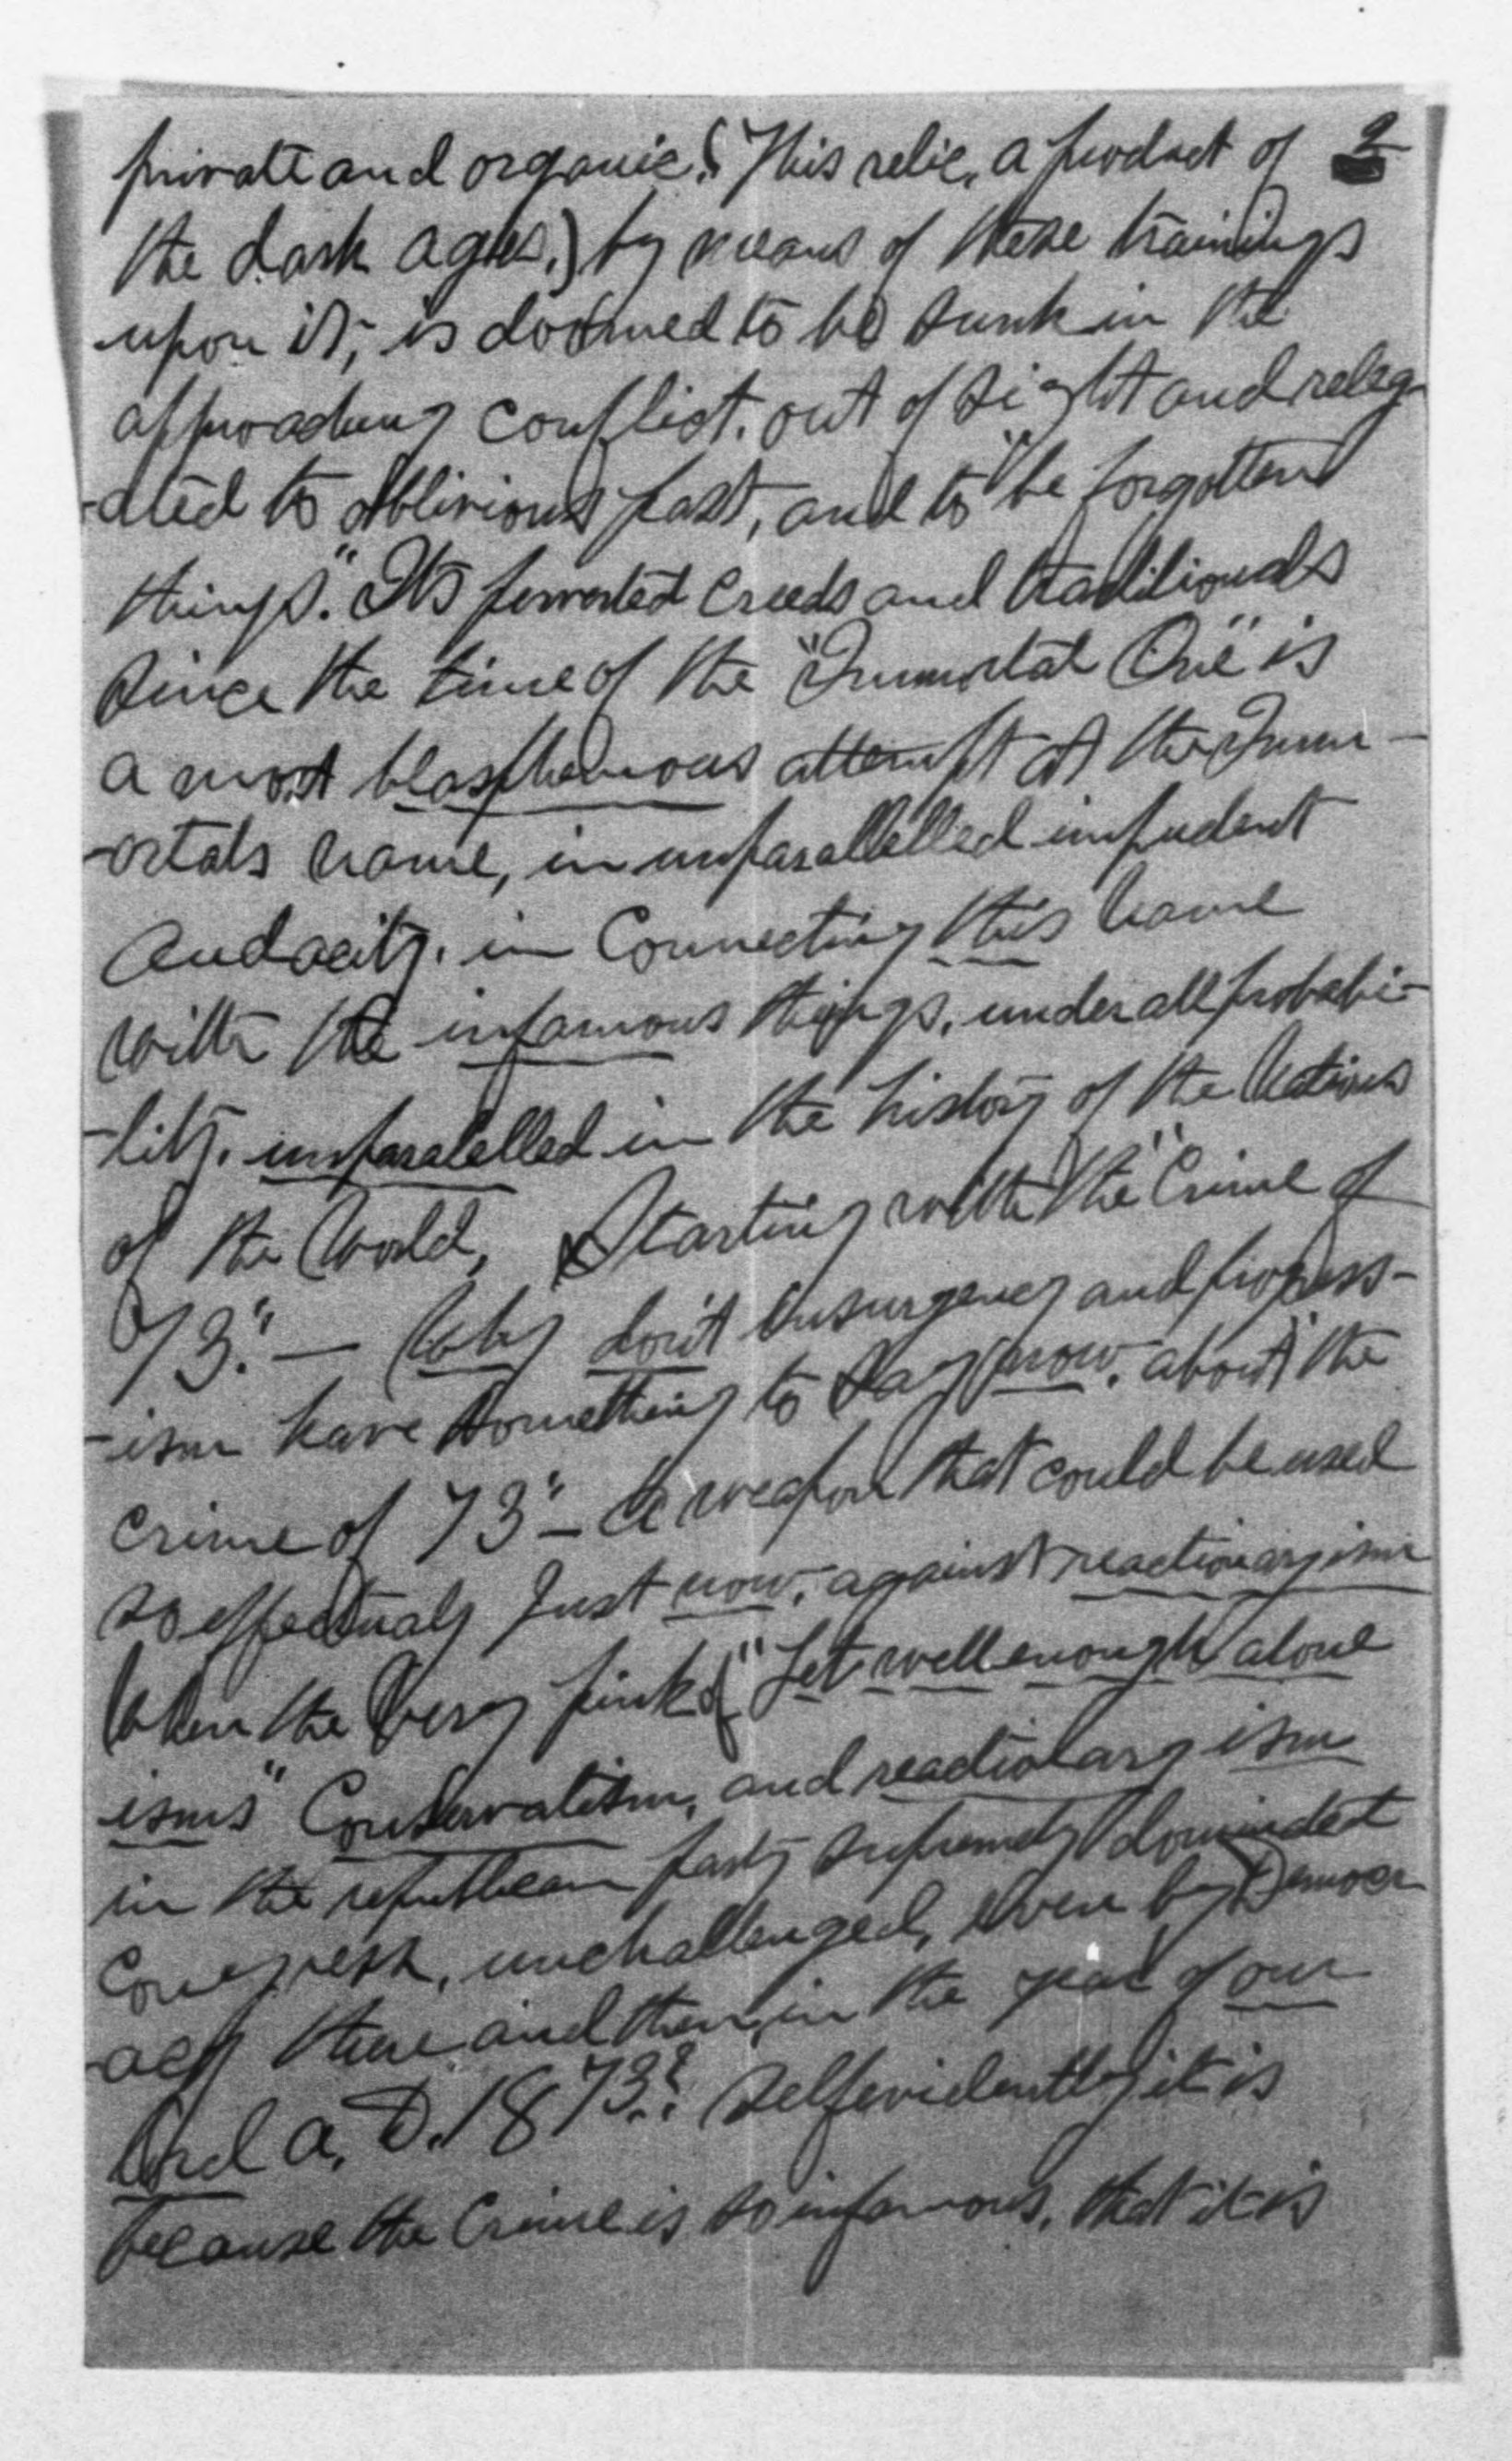 private and organic. (This relic, a product of 2
the dark ages.) by means of these trainings
upon it, is doomed to be sunk in the
approaching conflict. out of sight and releg-
-ated to oblivious past, and to "be forgotten
things." Its perverted creeds and traditionals
since the time of the "Immortal One" is
a most blasphemous attempt at the Imm-
-ortals name, in unparallelled impudent
audacity. in Connecting this name
with the infamous things, under all probabi-
-lity. unparalelled in the history of the Nations
of the World, Starting with the "Crime of
73." — Why don't insurgency and progress-
-ism have something to say now. about "the
crime of 73" — a weapon that could be used
so effectualy Just now, against reactionaryism
When the very pink of "Let well enough alone
isms" Conservatism, and reactionary ism
in the republican party supremely dominated
Congress, unchallenged, even by Democr-
-acy there and then, in the year of our
Lord A. D. 1873? Selfevidently it is
because the Crime is so infamous, that it is